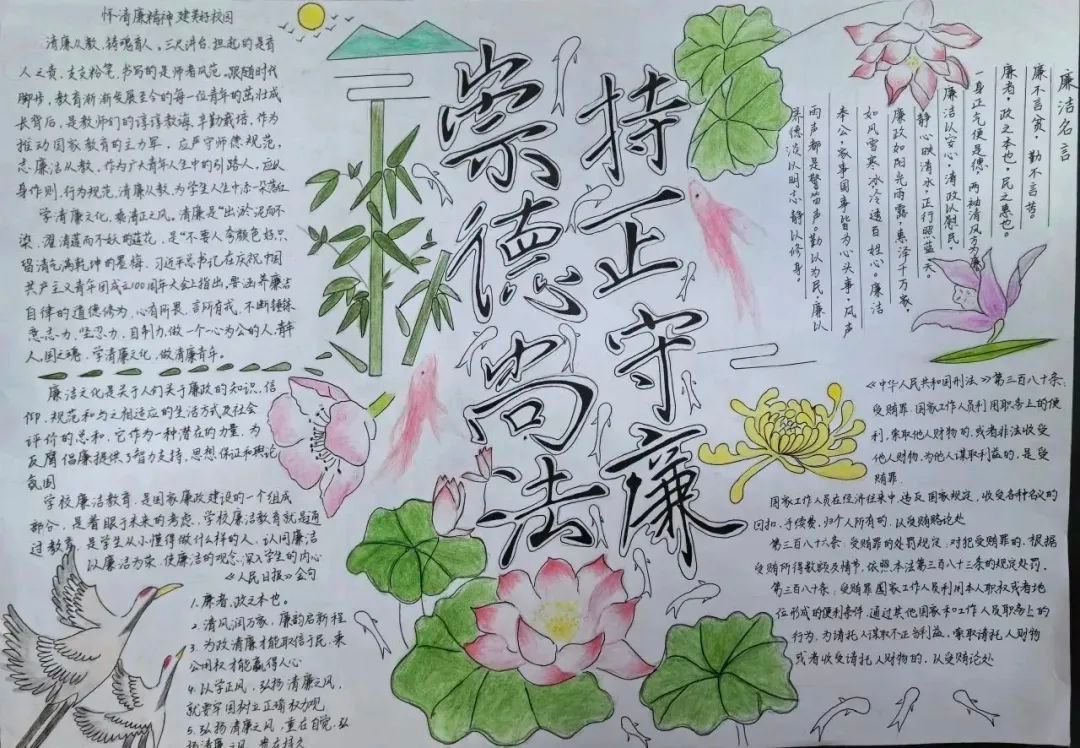 怀清廉精神 建美好校园
清廉从教,铸魂育人。三尺讲台,担起的是育
人之责,支支粉笔,书写的是师者风范。跟随时代
脚步,教育渐渐发展至今的每一位青年的茁壮成
长背后,是教师们的谆谆教诲,辛勤栽培。作为
推动国家教育的主力军,应严守师德规范,
志廉洁从教。作为广大青年人生中的引路人,应以
身作则,行为规范,清廉从教,为学生人生中添一朵
学清廉文化,乘清正之风。清廉是“出淤泥而不
染,濯清莲而不妖的莲花,是“不要人夸颜色好,只
留清气满乾坤的墨梅,习近平总书记在庆祝中国
共产主义青年团成立100周年大会上指出,要涵养廉洁
自律的道德修为,心有所畏、言所有戒,不断锤炼
意志力、坚忍力、自制力,做一个心为公的人。青年
人,国之魂,学清廉文化,做清廉青年。
廉洁文化是关于人们关于廉政的知识、信
仰、规范和与之相适应的生活方式及社会
评价的总和,它作为一种潜在的力量,为
反腐倡廉提供了智力支持、思想保证和舆论
氛围
学校廉洁教育,是国家廉政建设的一个组成
部分,是着眼于未来的考虑,学校廉洁教育就是通
过教育,是学生从小懂得做什么样的人,认同廉洁
以廉洁为荣,使廉洁的观念,深入学生的内心
《人民日报》金句
1.廉者,政之本也。
2.清风润万家,廉韵启新程
3.为政清廉才能取信于民,秉
公用权才能赢得人心
4.以学正风,弘扬清廉之风,
就要牢固树立正确权力观
5.弘扬清廉之风,重在自觉,弘
扬清廉之风,贵在持久
崇德尚法
持正守廉
廉洁名言
廉不言贫,勤不言苦。
廉者,政之本也,民之惠也。
一身正气便是德,两袖清风方为廉
廉洁以安心,清政以慰民
静心映清水,正行照蓝天。
廉政如阳光雨露,惠泽千万家,
如风雪寒冰冷透百姓心。廉洁
奉公,家事国事皆为心头事,风声
雨声都是警笛声。勤以为民,廉以
保德淡以明志,静以修身。
《中华人民共和国刑法》第三百八十条:
受贿罪:国家工作人员利用职务上的便
利,索取他人财物的,或者非法收受
他人财物,为他人谋取利益的,是受
贿罪
国家工作人员在经济往来中,违反国家规定,收受各种名义的
回扣、手续费,归个人所有的,以受贿赂论处
第三百八十六条:受贿罪的处罚规定:对犯受贿罪的,根据
受贿所得数额及情节,依照本法第三百八十三条的规定处罚,
第三百八十条:受贿罪国家工作人员利用本人职权或者地
位形成的便利条件,通过其他国家和工作人员职务上的
行为,为请托人谋取不正当利益,索取请托人财物
或者收受请托人财物的,以受贿论处